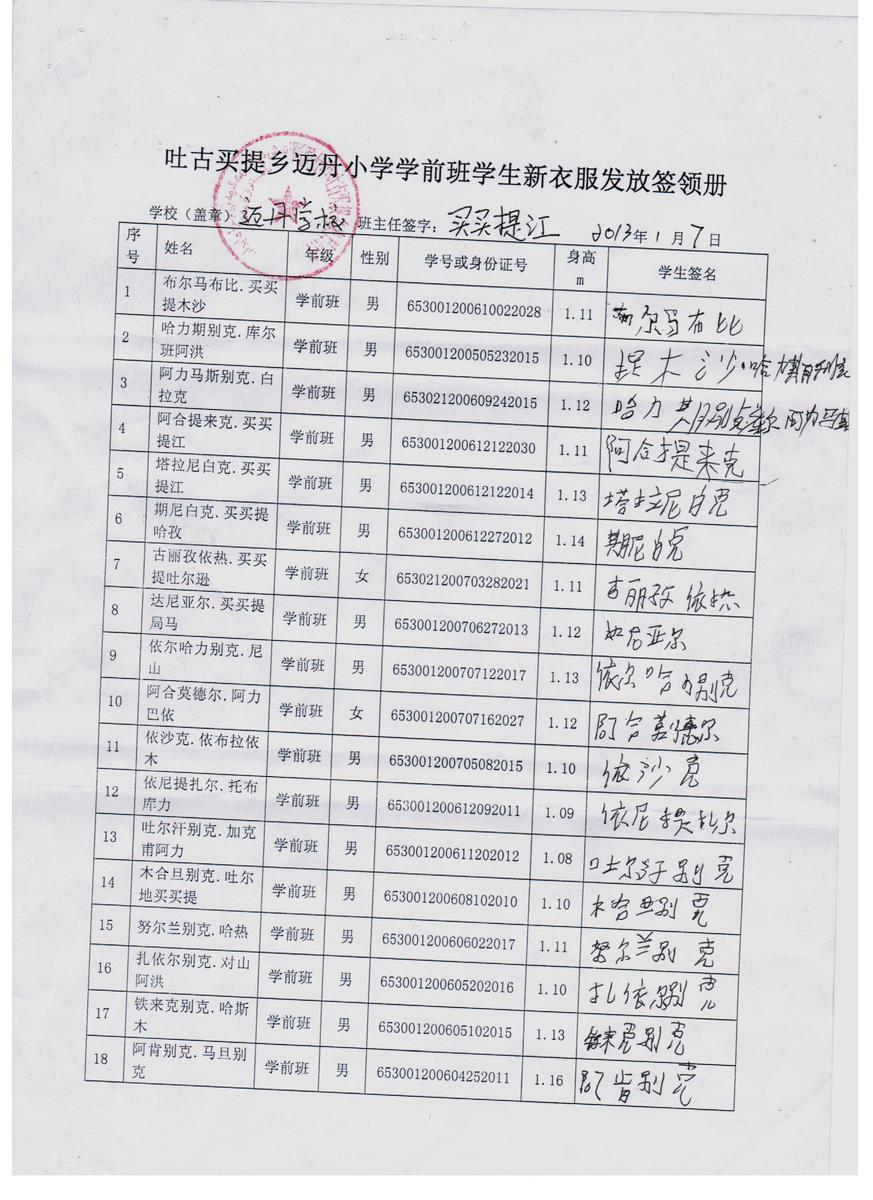 吐古买提乡迈丹小学学前班学生新衣服发放签领册
学校（盖章） 迈丹学校 班主任签字：买买提江 2013年1月7日
序号 姓名 年级 性别 学号或身份证号 身高m 学生签名
1 布尔马布比.买买提木沙 学前班 男 653001200610022028 1.11 布尔马布比
2 哈力期别克.库尔班阿洪 学前班 男 653001200505232015 1.10 提木沙 哈力
3 阿力马斯别克.白拉克 学前班 男 653021200609242015 1.12 哈力期别克 阿力马
4 阿合提来克.买买提江 学前班 男 653001200612122030 1.11 阿合提来克
5 塔拉尼白克.买买提江 学前班 男 653001200612122014 1.13 塔拉尼白克
6 期尼白克.买买提哈孜 学前班 男 653001200612272012 1.14 期尼白克
7 古丽孜依热.买买提吐尔逊 学前班 女 653021200703282021 1.11 古丽孜依热
8 达尼亚尔.买买提局马 学前班 男 653001200706272013 1.12 尼亚尔
9 依尔哈力别克.尼山 学前班 男 653001200707122017 1.13 依尔哈力别克
10 阿合莫德尔.阿力巴依 学前班 女 653001200707162027 1.12 阿合莫德尔
11 依沙克.依布拉依木 学前班 男 653001200705082015 1.10 依沙克
12 依尼提扎尔.托布库力 学前班 男 653001200612092011 1.09 依尼提扎尔
13 吐尔汗别克.加克甫阿力 学前班 男 653001200611202012 1.08 吐尔汗别克
14 木合旦别克.吐尔地买买提 学前班 男 653001200608102010 1.10 木哈旦别克
15 努尔兰别克.哈热 学前班 男 653001200606022017 1.11 努尔兰别克
16 扎依尔别克.对山阿洪 学前班 男 653001200605202016 1.10 扎依尔别克
17 铁来克别克.哈斯木 学前班 男 653001200605102015 1.13 铁来克别克
18 阿肯别克.马旦别克 学前班 男 653001200604252011 1.16 阿肯别克